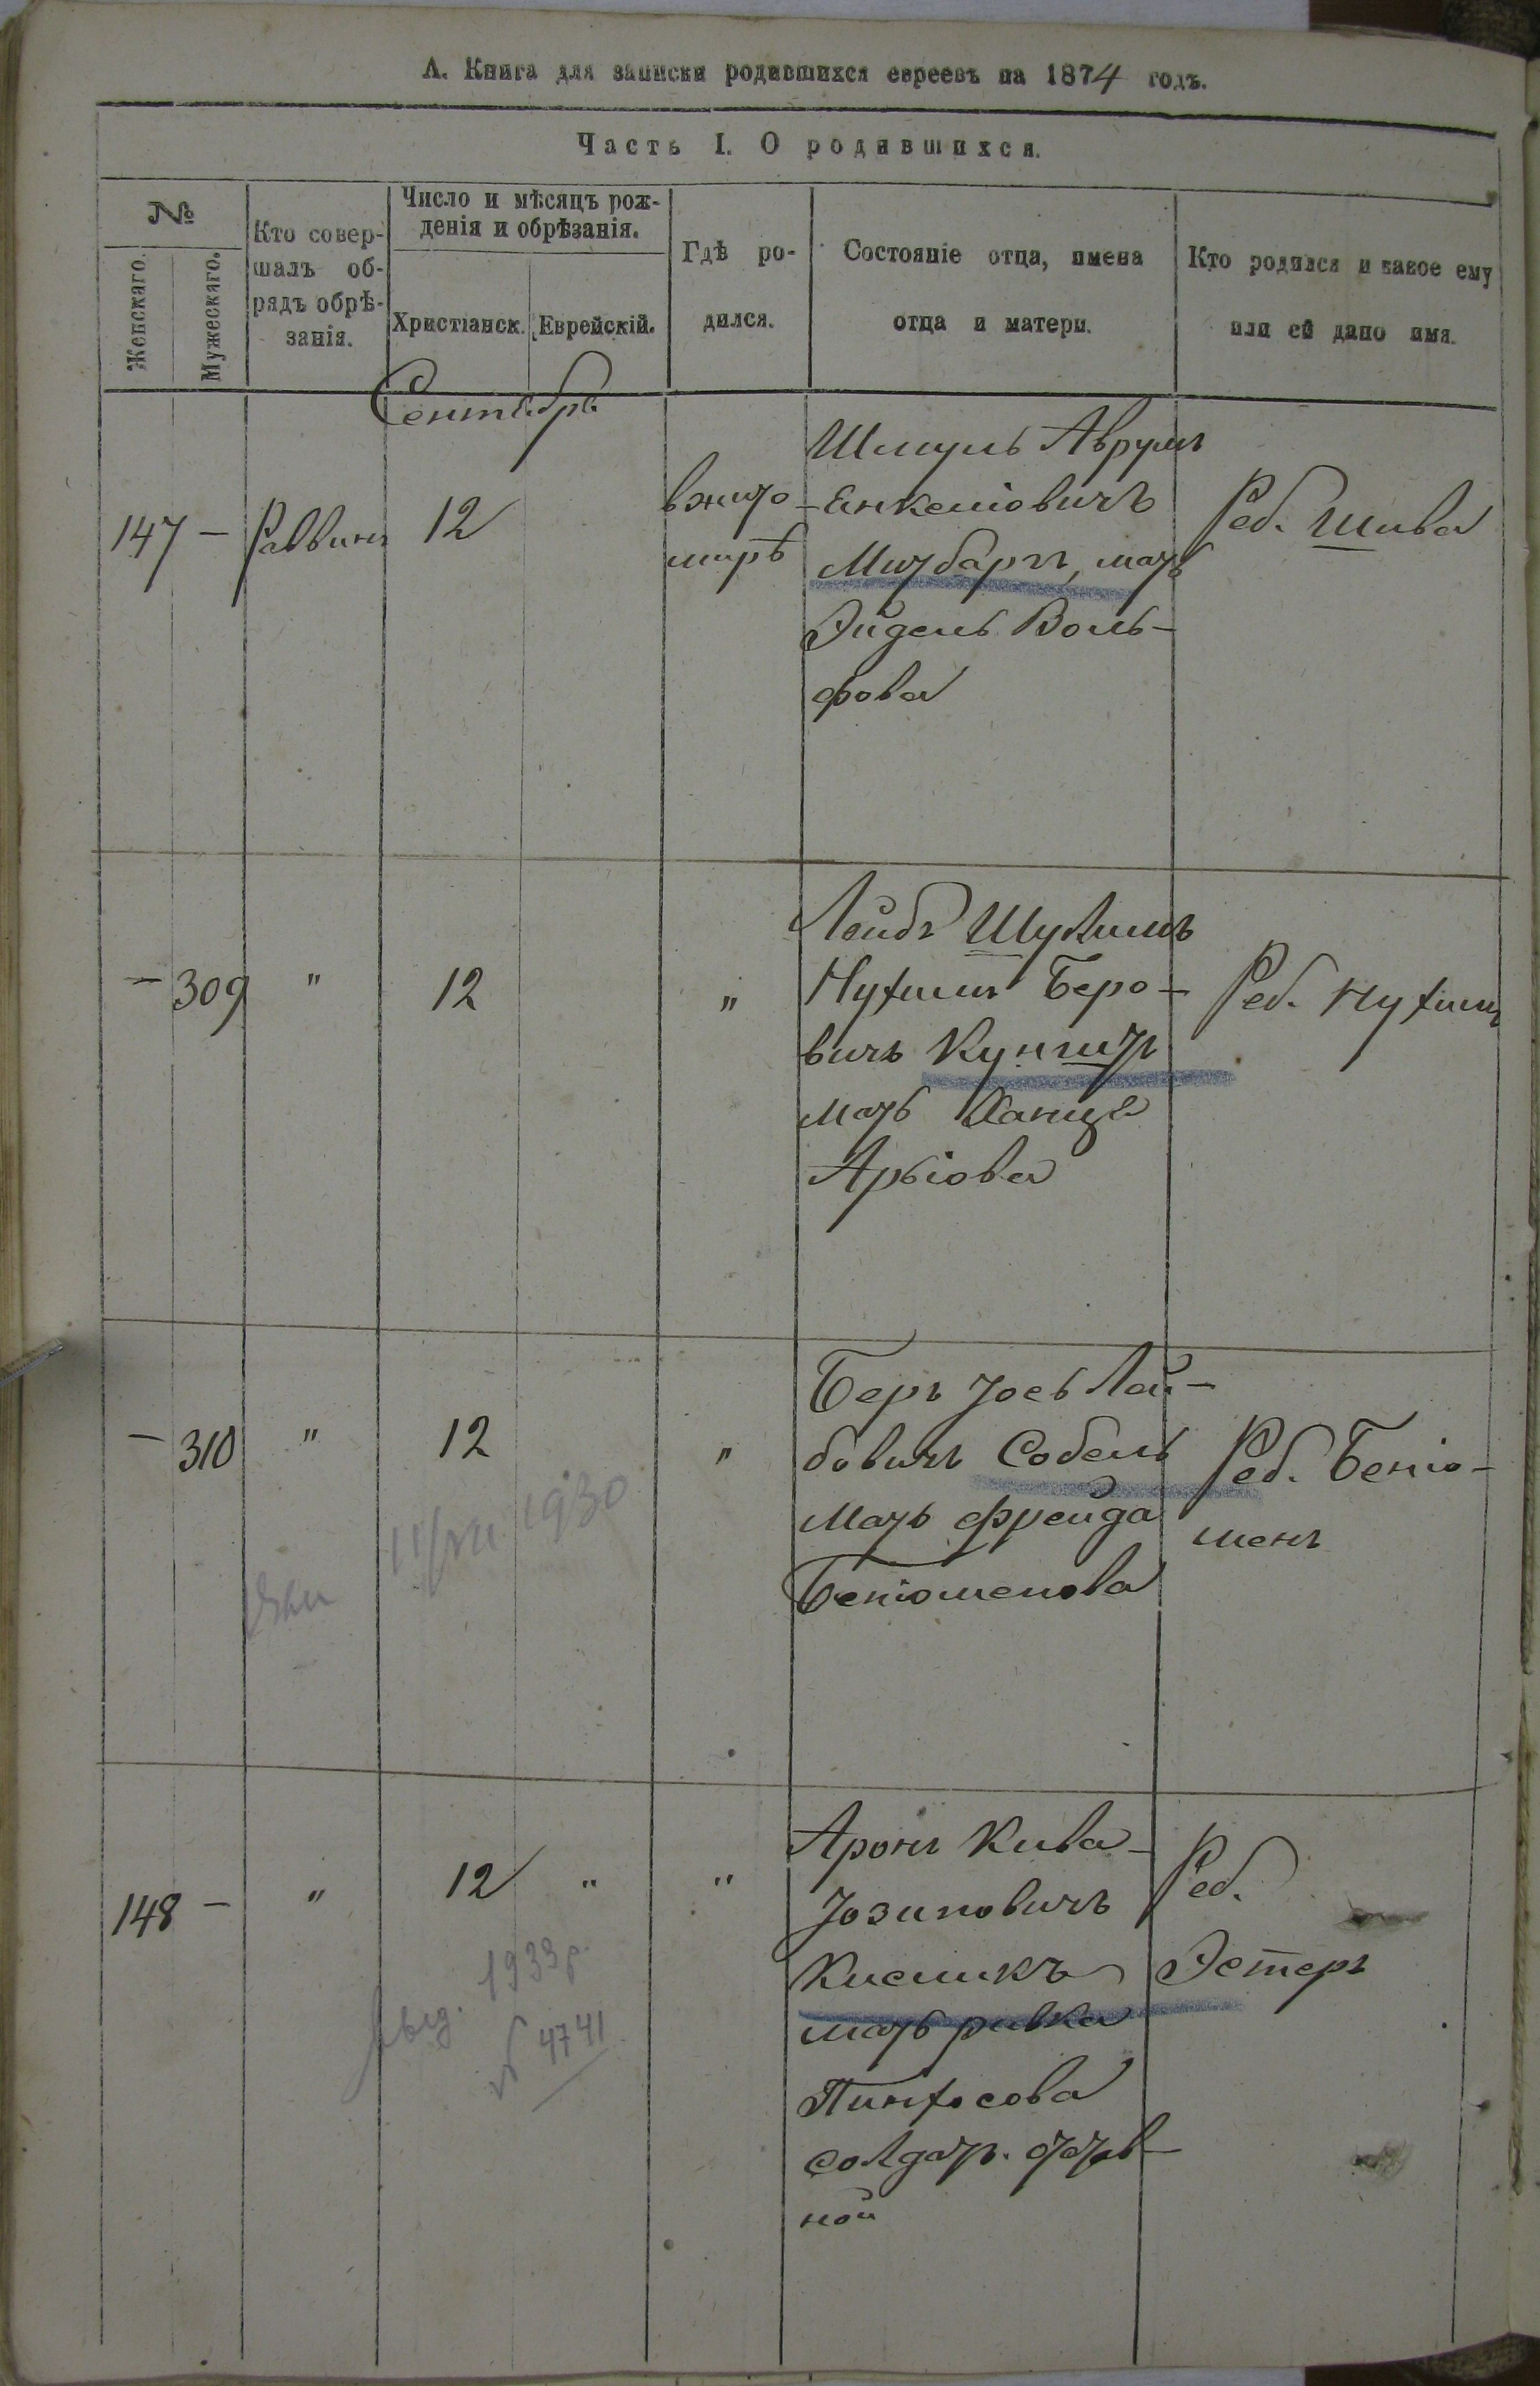 А. Книга для записки родившихся евреевъ на 1874 годъ.
Часть I. О родившихся.
№
Женскаго.
Мужескаго.
Кто совер-
шалъ об-
рядъ обрѣ-
занія.
Число и мѣсяцъ рож-
денія и обрѣзанія.
Христіанск.
Еврейскій.
Гдѣ ро-
дился.
Состояніе отца, имена
отца и матери.
Кто родился и какое ему
или ей дано имя.
Сентябрь
147 – Раввинъ 12
в Жито-
мирѣ
Шмуль Аврумъ
Енкеліовичъ
Митбаргъ, мать
Эйдель Воль-
фова
Реб. Шива
– 309 " 12 "
Лейбъ Шулимъ
Нухимъ Беро-
вичъ Кунши́тъ
мать Ханця
Арьіова
Реб. Нухимъ
– 310 " 12 "
Беръ Іось Лей-
бовичъ Собель
мать Фрейда
Беніоменова
Реб. Беніо-
менъ
11/VII 1930
148 – " 12 " "
Аронъ Кива
Іозиповичъ
Кисликъ
мать Ривка
Пинхосова
солдат. отстав-
ной
Реб.
Эстеръ
Выд. 1933 р.
№ 4741